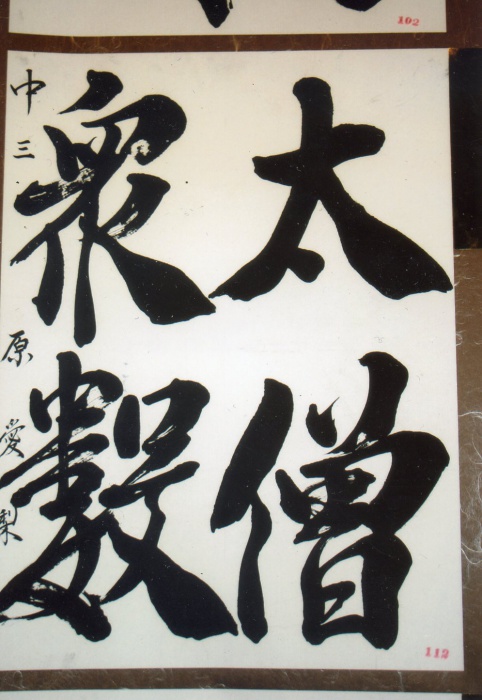 102
太僧
衆數
中三 原 愛梨
112